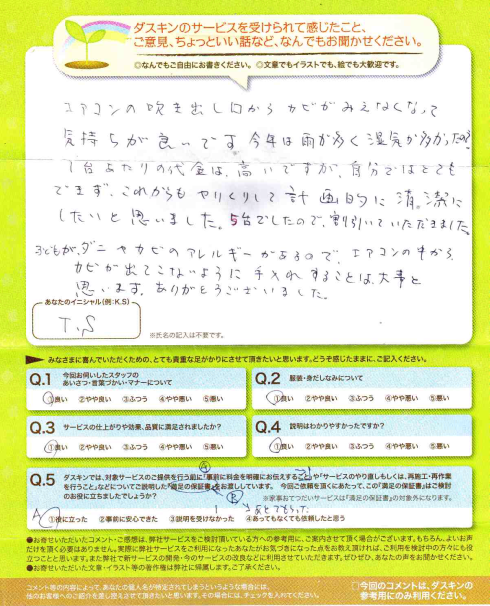 ダスキンのサービスを受けられて感じたこと、
ご意見、ちょっといい話など、なんでもお聞かせください。
◎なんでもご自由にお書きください。 ◎文章でもイラストでも、絵でも大歓迎です。
エアコンの吹き出し口から カビがみえなくなって
気持ちが良いです。今年は雨が多く湿気が多かったので
1台あたりの代金は、高いですが、自分ではとても
できず、これからも やりくりして計画的に清潔に
したいと思いました。5台でしたので、割引いていただきました
子どもが、ダニやカビのアレルギーがあるので、エアコンの中から
カビが出てこないように手入れすることは、大事と
思います。ありがとうございました。
あなたのイニシャル(例:K.S)
T,S
※氏名の記入は不要です。
みなさまに喜んでいただくための、とても貴重な足がかりにさせて頂きたいと思います。どうぞ感じたままに、ご記入ください。
Q.1 今回お伺いしたスタッフの
あいさつ・言葉づかい・マナーについて
①良い ②やや良い ③ふつう ④やや悪い ⑤悪い
Q.2 服装・身だしなみについて
①良い ②やや良い ③ふつう ④やや悪い ⑤悪い
Q.3 サービスの仕上がりや効果、品質に満足されましたか?
①良い ②やや良い ③ふつう ④やや悪い ⑤悪い
Q.4 説明はわかりやすかったですか?
①良い ②やや良い ③ふつう ④やや悪い ⑤悪い
Q.5 ダスキンでは、対象サービスのご提供を行う前に「事前に料金を明確にお伝えすること」や「サービスのやり直しもしくは、再施工・再作業
を行うこと」などについてご説明した「満足の保証書」をお渡ししています。 今回ご依頼を頂くにあたって、この「満足の保証書」はご検討
のお役に立ちましたでしょうか?
Ⓐ
Ⓑ
※家事おてつだいサービスは「満足の保証書」の対象外になります。
あとでもらった
A
①役に立った ②事前に安心できた ③説明を受けなかった ④あってもなくても依頼したと思う
●お寄せいただいたコメント・ご感想は、弊社サービスをご検討頂いている方への参考用に、ご案内させて頂く場合がございます。もちろん、よいお声
だけを頂く必要はありません。実際に弊社サービスをご利用になったあなたがお気づきになった点をお教え頂ければ、ご利用を検討中の方々にも役
立つことと思います。また弊社で新サービスの開発・今のサービスの改良などに利用させていただきます。ぜひぜひ、あなたの声をお聞かせください。
●お寄せいただいた文章・イラスト等の著作権は弊社に帰属します。ご了承ください。
コメント等の内容によって、あなたの個人名が特定されてしまうというような場合には、
他のお客様へのご紹介を差し控えさせて頂きたいと思います。その場合には、チェックを入れてください。
□今回のコメントは、ダスキンの
参考用にのみご利用ください。